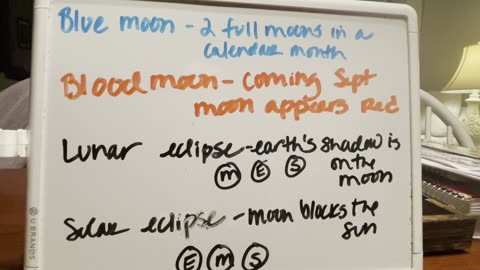 Blue moon - 2 full moons in a
calendar month
Blood moon - coming Sept
moon appears red
Lunar eclipse - earth's shadow is
on the
moon
M E S
Solar eclipse - moon blocks the
sun
E M S
U BRANDS